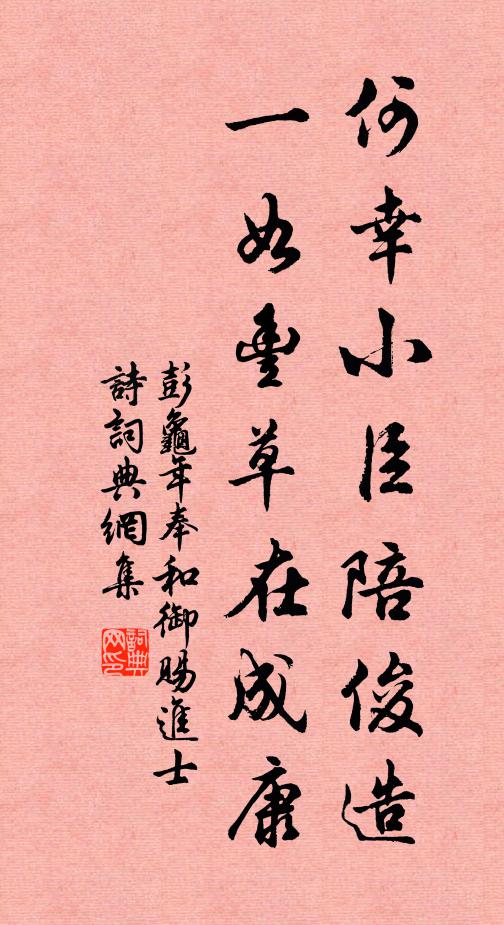 何幸小臣陪俊造
一如豐草在成康
彭龜年奉和御賜進士
詩詞典網集
詞典
网印